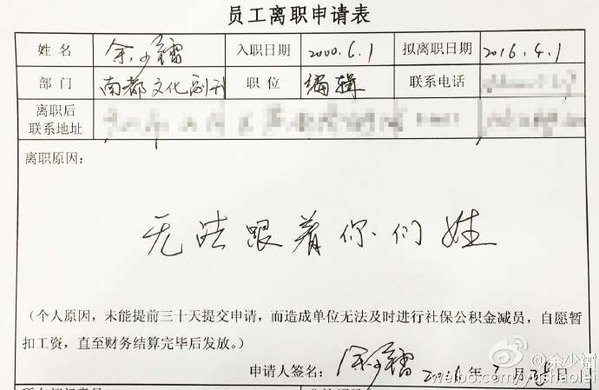 员工离职申请表
姓 名 余少镭 入职日期 2000.6.1 拟离职日期 2016.4.1
部 门 南都文化副刊 职 位 编辑 联系电话
离职后
联系地址
离职原因:
无法跟着你们姓
(个人原因,未能提前三十天提交申请,而造成单位无法及时进行社保公积金减员,自愿暂
扣工资,直至财务结算完毕后发放。)
申请人签名: 余少镭 2016年3月28日
@余少镭
weibo.com/yushaolei